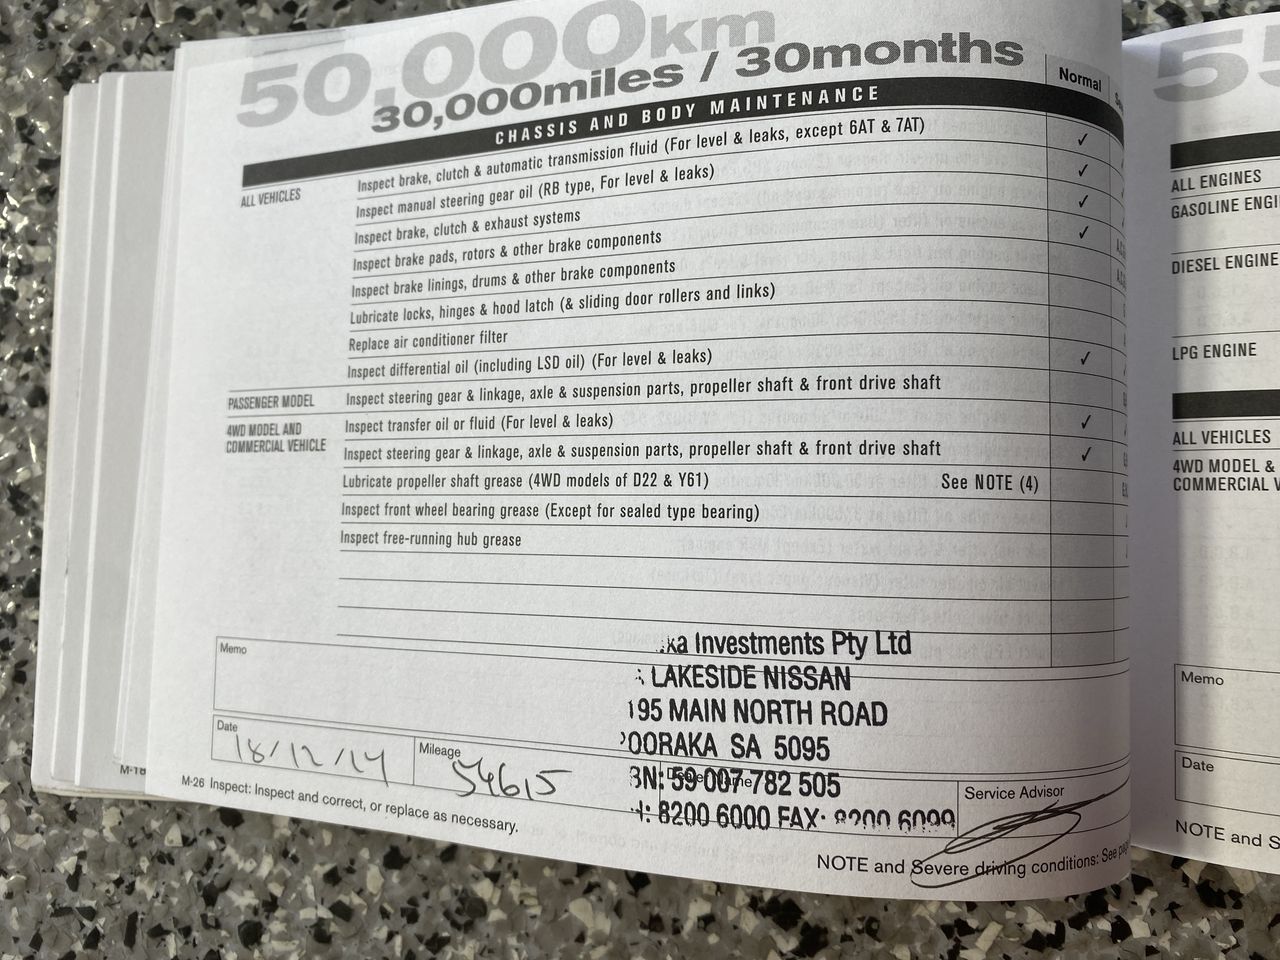 50,000km
30,000miles / 30months
Normal
CHASSIS AND BODY MAINTENANCE
ALL VEHICLES
Inspect brake, clutch & automatic transmission fluid (For level & leaks, except 6AT & 7AT) ✓
Inspect manual steering gear oil (RB type, For level & leaks) ✓
Inspect brake, clutch & exhaust systems ✓
Inspect brake pads, rotors & other brake components ✓
Inspect brake linings, drums & other brake components
Lubricate locks, hinges & hood latch (& sliding door rollers and links)
Replace air conditioner filter
Inspect differential oil (including LSD oil) (For level & leaks) ✓
PASSENGER MODEL
Inspect steering gear & linkage, axle & suspension parts, propeller shaft & front drive shaft
4WD MODEL AND
COMMERCIAL VEHICLE
Inspect transfer oil or fluid (For level & leaks) ✓
Inspect steering gear & linkage, axle & suspension parts, propeller shaft & front drive shaft ✓
Lubricate propeller shaft grease (4WD models of D22 & Y61) See NOTE (4)
Inspect front wheel bearing grease (Except for sealed type bearing)
Inspect free-running hub grease
Memo
ka Investments Pty Ltd
LAKESIDE NISSAN
195 MAIN NORTH ROAD
OORAKA SA 5095
BN: 59 007 782 505
H: 8200 6000 FAX: 8200 6099
Date
18/12/14
Mileage
54615
Service Advisor
M-26 Inspect: Inspect and correct, or replace as necessary.
NOTE and Severe driving conditions: See
M-18
55
ALL ENGINES
GASOLINE ENGI
DIESEL ENGINE
LPG ENGINE
ALL VEHICLES
4WD MODEL &
COMMERCIAL V
Memo
Date
NOTE and S